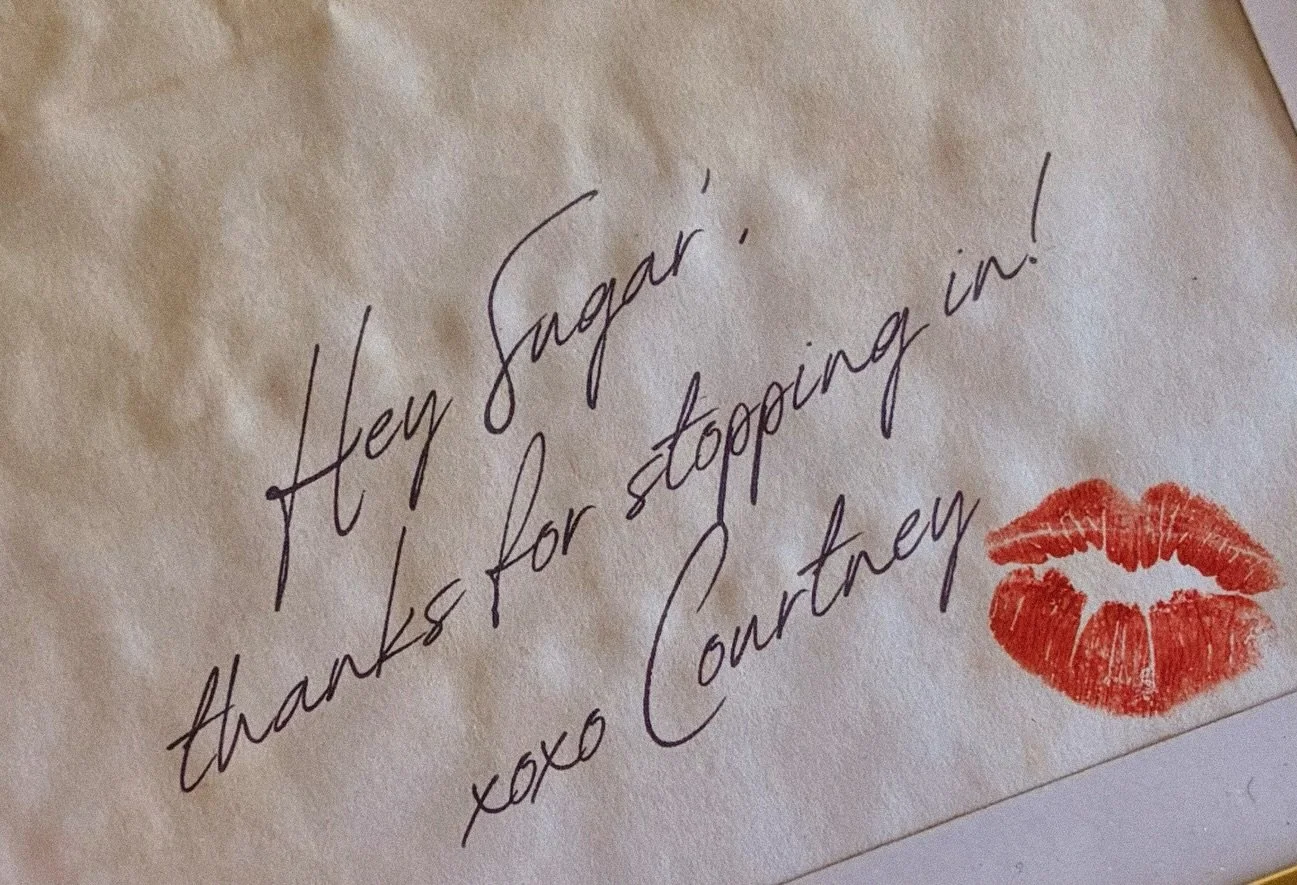 Hey Sugar!
thanks for stopping in!
xoxo Courtney